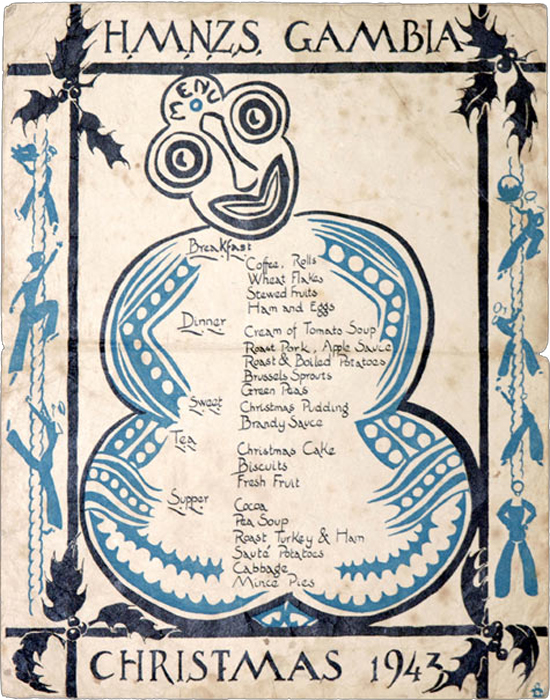 H.M.N.Z.S. GAMBIA
MENU
Breakfast
Coffee, Rolls
Wheat Flakes
Stewed Fruits
Ham and Eggs
Dinner
Cream of Tomato Soup
Roast Pork, Apple Sauce
Roast & Boiled Potatoes
Brussels Sprouts
Green Peas
Sweet
Christmas Pudding
Brandy Sauce
Tea
Christmas Cake
Biscuits
Fresh Fruit
Supper
Cocoa
Pea Soup
Roast Turkey & Ham
Sauté Potatoes
Cabbage
Mince Pies
CHRISTMAS 1943